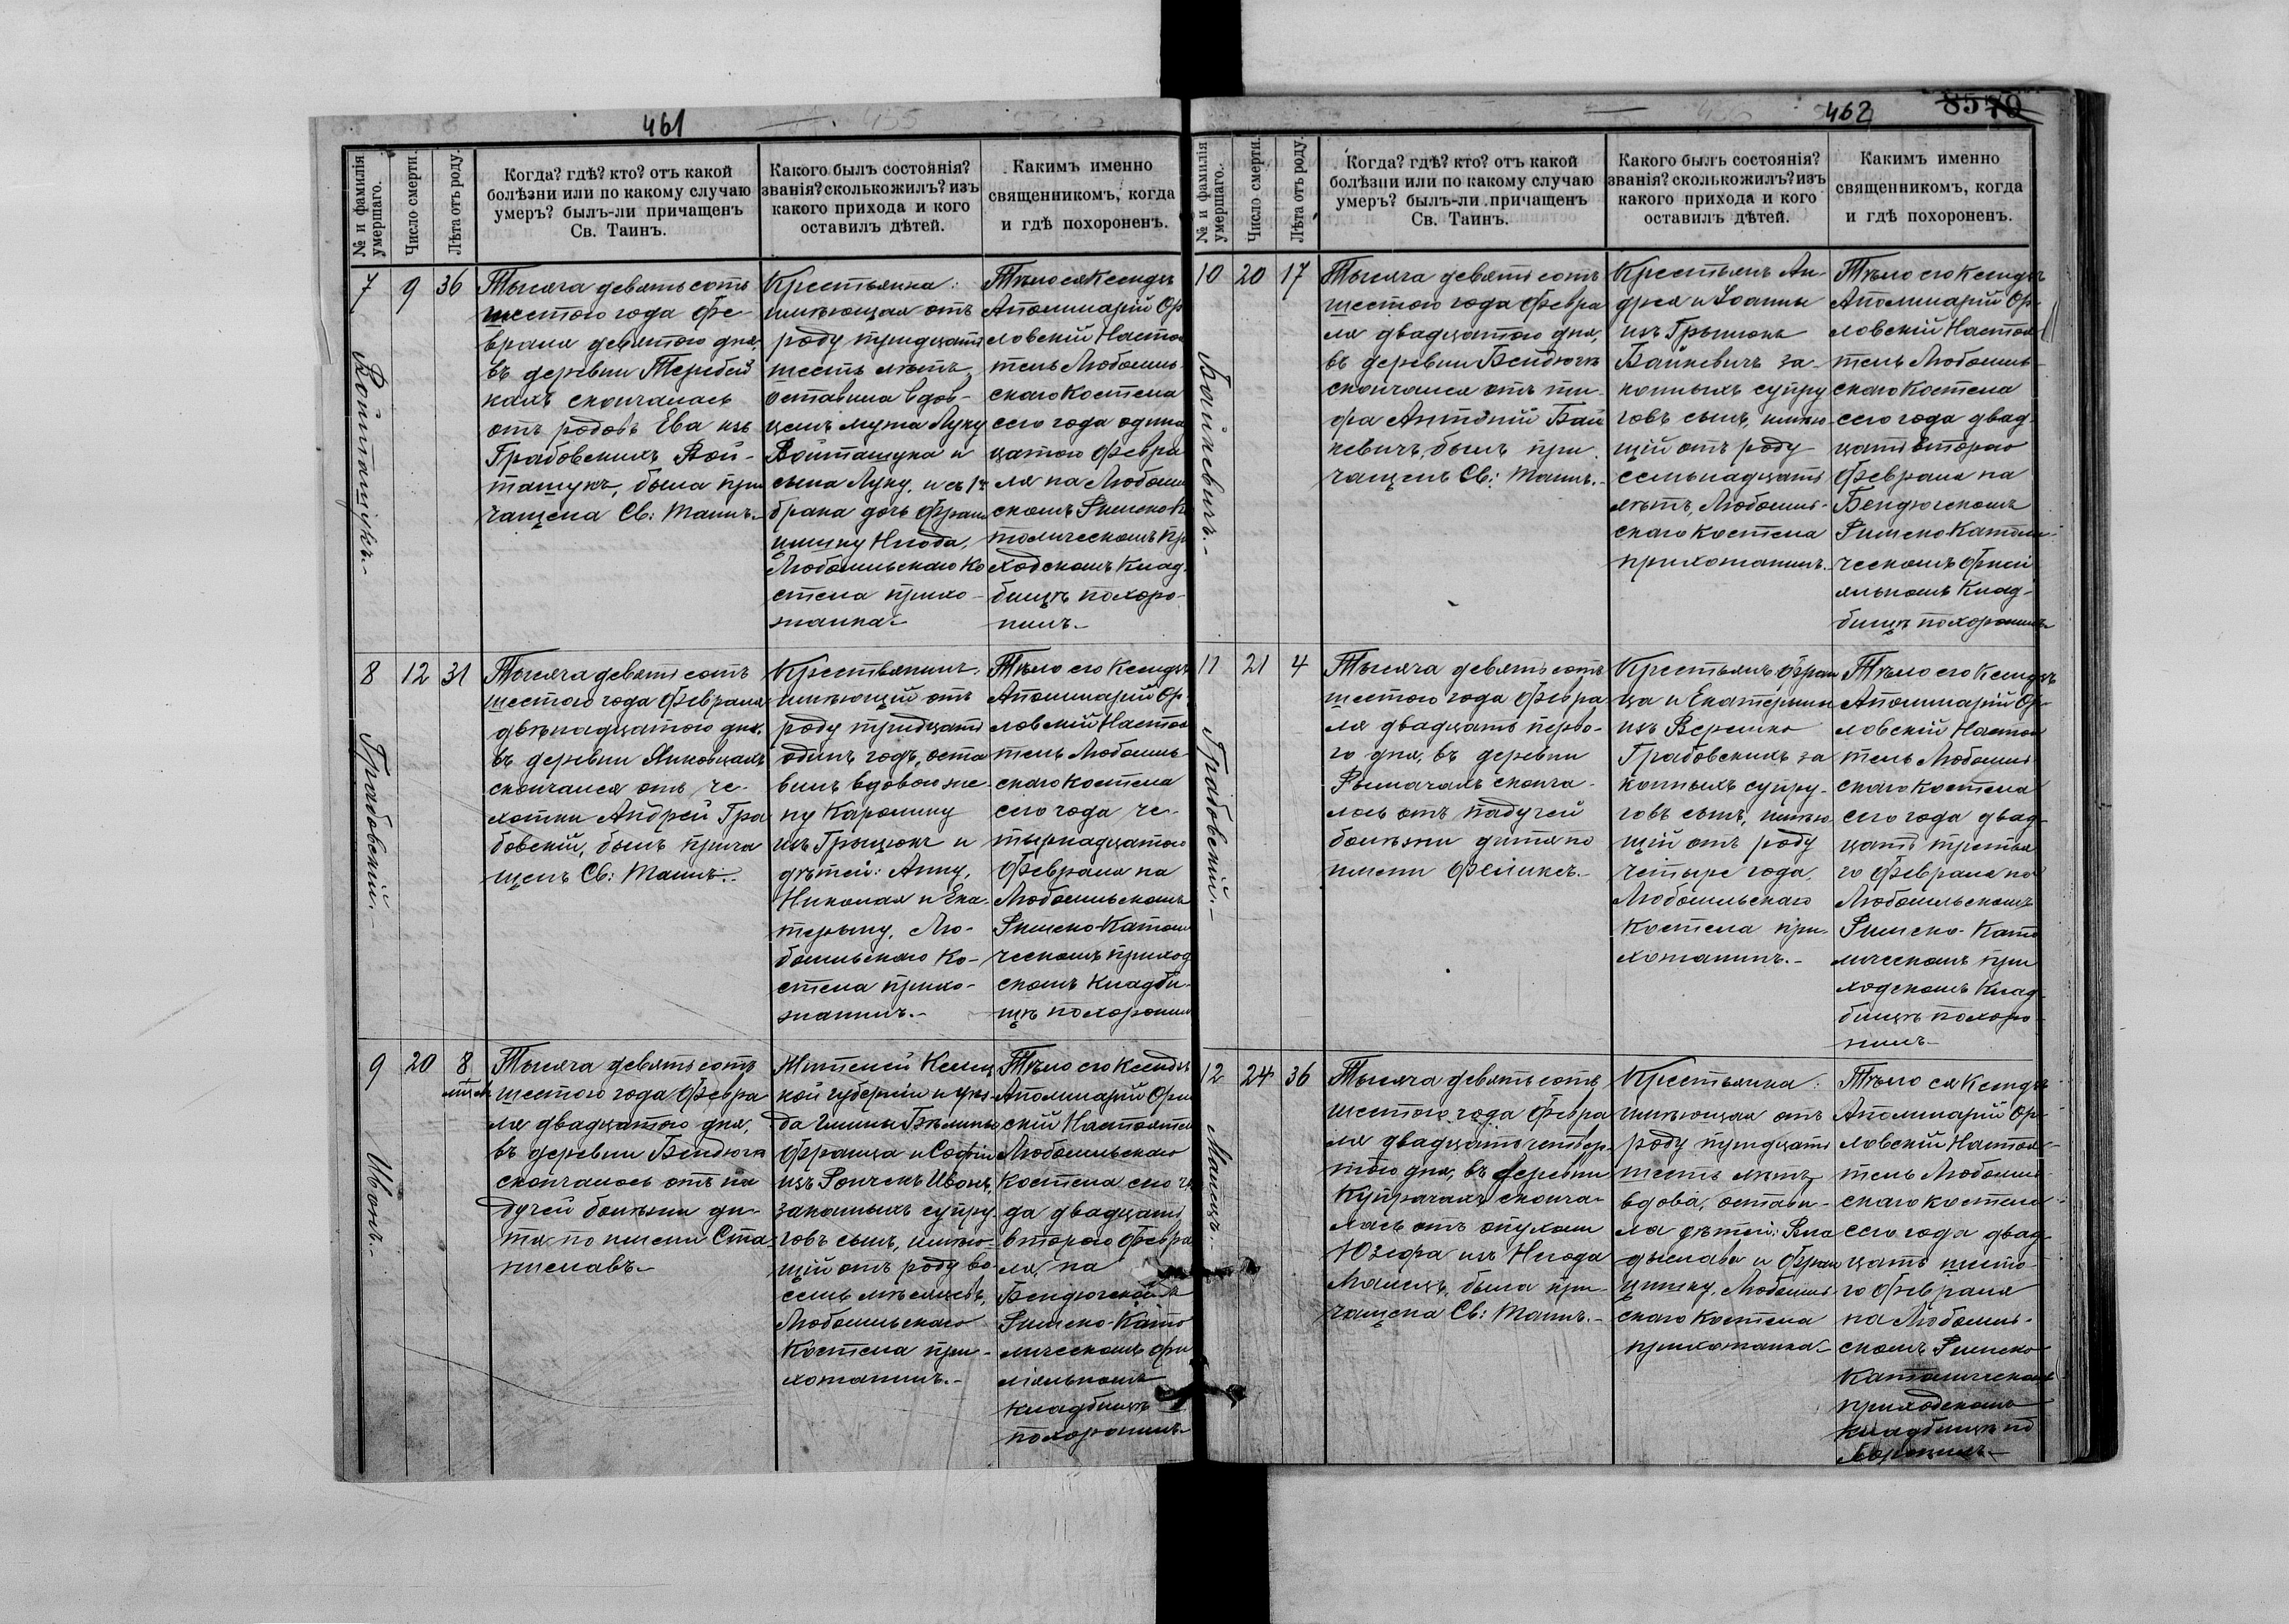 461
№ и фамилія умершаго.
Число смерти.
Лѣта отъ роду.
Когда? гдѣ? кто? отъ какой
болѣзни или по какому случаю
умеръ? былъ-ли причащенъ
Св. Таинъ.
Какого былъ состоянія?
званія? сколько жилъ? изъ
какого прихода и кого
оставилъ дѣтей.
Какимъ именно
священникомъ, когда
и гдѣ похороненъ.
7
Войташукъ.
9
36
Тысяча девятьсотъ
шестого года фе-
враля девятого дня
въ деревни Теребей
кахъ скончалась
отъ родовъ Ева изъ
Грабовскихъ Вой-
ташукъ, была при
чащена Св: Таинъ.
Крестьянка:
имѣющая отъ
роду тридцать
шесть лѣтъ,
оставила вдов-
цемъ мужа Луку
Войташука и
сына Луку, и съ 1го
брака дочь Фран
цишку Нюда,
Любомльскаго Ко
стела прихо-
жанка
Тѣло ея Ксендзъ
Аполинарій Ор
ловскій Настоя
тель Любомль
скаго Костела
сего года одина
цатого февра
ля на Любомль
скомъ Римско-Ка
толическомъ При
ходскомъ Клад
бищѣ похоро-
нилъ.
8
Грабовскій.
12
31
Тысяча девятьсотъ
шестого года Февраля
двѣнадцатого дня,
въ деревни Янковцахъ
скончался отъ че-
хотки Андрей Гра
бовскій, былъ прича
щенъ Св: Таинъ.
Крестьянинъ:
имѣющій отъ
роду тридцать
одинъ годъ, оста
вилъ вдовою же-
ну Каролину
изъ Грицюкъ и
дѣтей: Анну,
Николая и Ека-
терину, Лю-
бомльскаго Ко-
стела прихо-
жанинъ.
Тѣло его Ксендзъ
Аполинарій Ор-
ловскій Настоя
тель Любомль
скаго Костела
сего года че-
тырнадцатого
Февраля на
Любомльскомъ
Римско-Католи
ческомъ приход
скомъ Кладби-
щѣ похоронилъ
9
Ивонъ.
20
8
мѣся
Тысяча девятьсотъ
шестого года Февра
ля двадцатого дня,
въ деревни Бендюгѣ
скончалось отъ па
дучей болѣзни ди-
тя по имени Ста
ниславъ.
Жителей Келец
кой губерніи и уѣз
да Гмины Бѣлины
Франца и Софіи
изъ Рончекъ Ивонъ,
законныхъ супру
говъ сынъ, имѣю-
щій отъ роду во
семь мѣсяцевъ,
Любомльскаго
Костела при-
хожанинъ.
Тѣло его Ксендзъ
Аполинарій Орлов
скій Настоятель
Любомльскаго
Костела сего го
да двадцать
второго Февра
ля, на
Бендюгскомъ
Римско-Като
лическомъ фи
ліяльномъ
кладбищѣ
похоронилъ
462
8570
№ и фамилія умершаго.
Число смерти.
Лѣта отъ роду.
Когда? гдѣ? кто? отъ какой
болѣзни или по какому случаю
умеръ? былъ-ли причащенъ
Св. Таинъ.
Какого былъ состоянія?
званія? сколько жилъ? изъ
какого прихода и кого
оставилъ дѣтей.
Какимъ именно
священникомъ, когда
и гдѣ похороненъ.
10
Байкевичъ.
20
17
Тысяча девятьсотъ
шестого года Февра
ля двадцатого дня,
въ деревни Бендюгѣ
скончался отъ ти-
фа Антоній Бай
кевичъ, былъ при
чащенъ Св: Таинъ.
Крестьянъ Ан-
дрея и Іоанны
изъ Грицюкъ
Байкевичъ за-
конныхъ супру
говъ сынъ, имѣю
щій отъ роду
семьнадцать
лѣтъ, Любомль-
скаго Костела
прихожанинъ.
Тѣло его Ксендзъ
Аполинарій Ор-
ловскій Настоя
тель Любомль-
скаго Костела
сего года двад-
цать второго
Февраля на
Бендюгскомъ
Римско-Католи-
ческомъ Филі
яльномъ Клад-
бищѣ похоронилъ
11
Грабовскій.
21
4
Тысяча девятьсотъ
шестого года Февра-
ля двадцать перво-
го дня, въ деревни
Рымачахъ сконча-
лось отъ падучей
болѣзни дитя по
имени Феликсъ.
Крестьянъ Фран
ца и Екатерины
изъ Веремко
Грабовскихъ за
конныхъ супру-
говъ сынъ, имѣю-
щій отъ роду
четыре года,
Любомльскаго
Костела при-
хожанинъ.
Тѣло его Ксендзъ
Аполинарій Ор-
ловскій Настоя
тель Любомль
скаго Костела
сего года двад-
цать третья
го Февраля на
Любомльскомъ
Римско-Като
лическомъ при
ходскомъ Клад-
бищѣ похоро-
нилъ
12
Малецъ.
24
36
Тысяча девятьсотъ
шестого года Февра
ля двадцать четвер-
того дня, въ деревни
Купрачахъ сконча-
лась отъ опухоли
Юзефа изъ Нюда
Малецъ, была при-
чащена Св: Таинъ.
Крестьянка:
имѣющая отъ
роду тридцать
шесть лѣтъ,
вдова, остави-
ла дѣтей: Вла
дислава и Фран
цишку, Любомль
скаго Костела
прихожанка
Тѣло ея Ксендзъ
Аполинарій Ор-
ловскій Настоя-
тель Любомль
скаго костела
сего года двад-
цать шесто-
го Февраля
на Любомль-
скомъ Римско
Католическомъ
приходскомъ
кладбищѣ по
хоронилъ